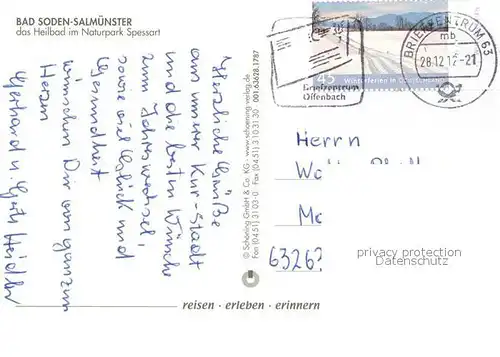 BAD SODEN-SALMÜNSTER
das Heilbad im Naturpark Spessart
Herzliche Grüße
aus unserer Kur-Stadt
und die besten Wünsche
zum Jahreswechsel,
sowie viel Glück und
Gesundheit
wünschen Dir von ganzem
Herzen
Gerhard u.
© Schöning GmbH & Co. KG · www.schoening-verlag.de
Fax (0451) 31 03-0 · Fax (0451) 3 10 31 30 001.63628.1787
45
Briefzentrum
Offenbach
BRIEFZENTRUM 63
mb
28.12.12-21
Herrn
6326
privacy protection
Datenschutz
reisen · erleben · erinnern